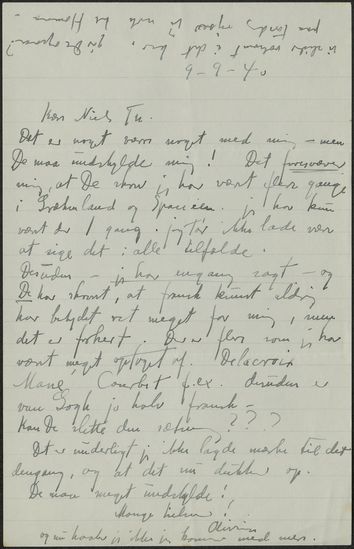 9-9-40
Kære Niels Th.
Det er noget værre noget med mig – men
De maa undskylde mig! Det forsvæver
mig, at De skrev jeg har været flere gange
i Grækenland og Spanien. jeg har kun
været der 1 gang. jeg tør ikke lade være
at sige det i alle tilfælde.
Desuden – jeg har engang sagt – og
De har skrevet, at fransk kunst aldrig
har betydet ret meget for mig, men
det er forkert. Der er flere som jeg har
været meget optaget af Delacroix
Manet, Courbet f.ex. desuden er
van Gogh jo halv fransk –
Kan De slette den sætning ? ? ?
Det er underligt jeg ikke lagde mærke til det
dengang, og at det nu dukker op.
De maa meget undskylde!
Mange hilsner!
og nu haaber jeg ikke jeg kommer med mere.